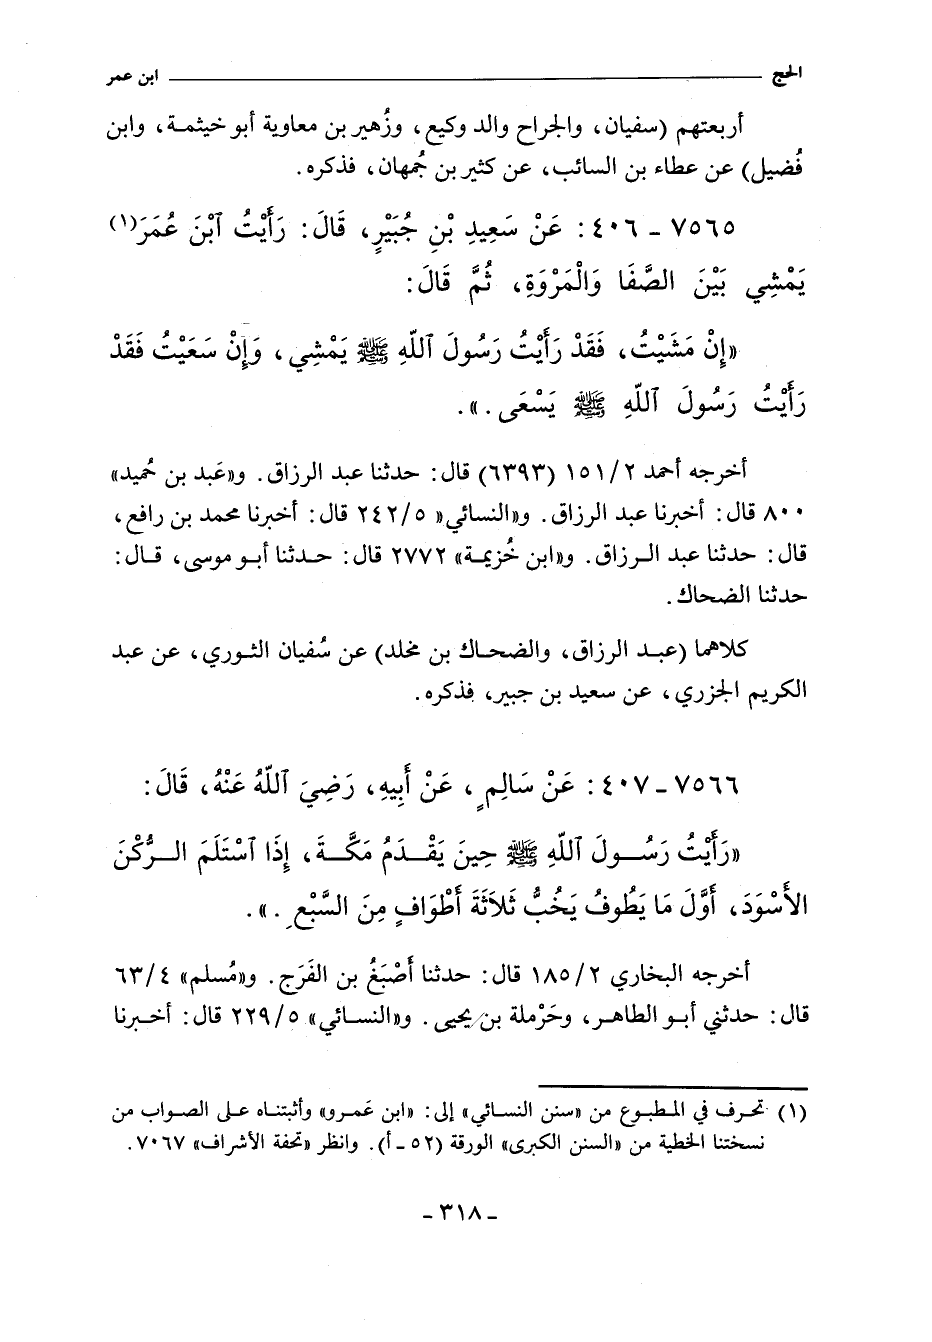 الحج ابن عمر
أربعتهم (سفيان، والجراح والد وكيع، وزُهير بن معاوية أبو خيثمة، وابن
فُضيل) عن عطاء بن السائب، عن كثير بن جُمهان، فذكره.
٧٥٦٥ ـ ٤٠٦: عَنْ سَعِيدِ بْنِ جُبَيْرٍ، قَالَ: رَأَيْتُ ٱبْنَ عُمَرَ(١)
يَمْشِي بَيْنَ الصَّفَا وَالْمَرْوَةِ، ثُمَّ قَالَ:
«إِنْ مَشَيْتُ، فَقَدْ رَأَيْتُ رَسُولَ ٱللّهِ ﷺ يَمْشِي، وَإِنْ سَعَيْتُ فَقَدْ
رَأَيْتُ رَسُولَ ٱللّهِ ﷺ يَسْعَى.».
أخرجه أحمد ١٥١/٢ (٦٣٩٣) قال: حدثنا عبد الرزاق. و«عَبد بن حُميد»
٨٠٠ قال: أخبرنا عبد الرزاق. و«النسائي» ٢٤٢/٥ قال: أخبرنا محمد بن رافع،
قال: حدثنا عبد الرزاق. و«ابن خُزيمة» ٢٧٧٢ قال: حدثنا أبو موسى، قال:
حدثنا الضحاك.
كلاهما (عبد الرزاق، والضحاك بن مخلد) عن سُفيان الثوري، عن عبد
الكريم الجزري، عن سعيد بن جبير، فذكره.
٧٥٦٦ ـ ٤٠٧: عَنْ سَالِمٍ، عَنْ أَبِيهِ، رَضِيَ ٱللّهُ عَنْهُ، قَالَ:
«رَأَيْتُ رَسُولَ ٱللّهِ ﷺ حِينَ يَقْدَمُ مَكَّةَ، إِذَا ٱسْتَلَمَ الرُّكْنَ
الأَسْوَدَ، أَوَّلَ مَا يَطُوفُ يَخُبُّ ثَلاَثَةَ أَطْوَافٍ مِنَ السَّبْعِ.».
أخرجه البخاري ١٨٥/٢ قال: حدثنا أَصْبَغُ بن الفَرَج. و«مُسلم» ٦٣/٤
قال: حدثني أبو الطاهر، وحَرْملة بن يحيى. و«النسائي» ٢٢٩/٥ قال: أخبرنا
(١) تحرف في المطبوع من «سنن النسائي» إلى: «ابن عَمرو» وأثبتناه على الصواب من
نسختنا الخطية من «السنن الكبرى» الورقة (٥٢ ـ أ). وانظر «تحفة الأشراف» ٧٠٦٧.
ـ ٣١٨ ـ